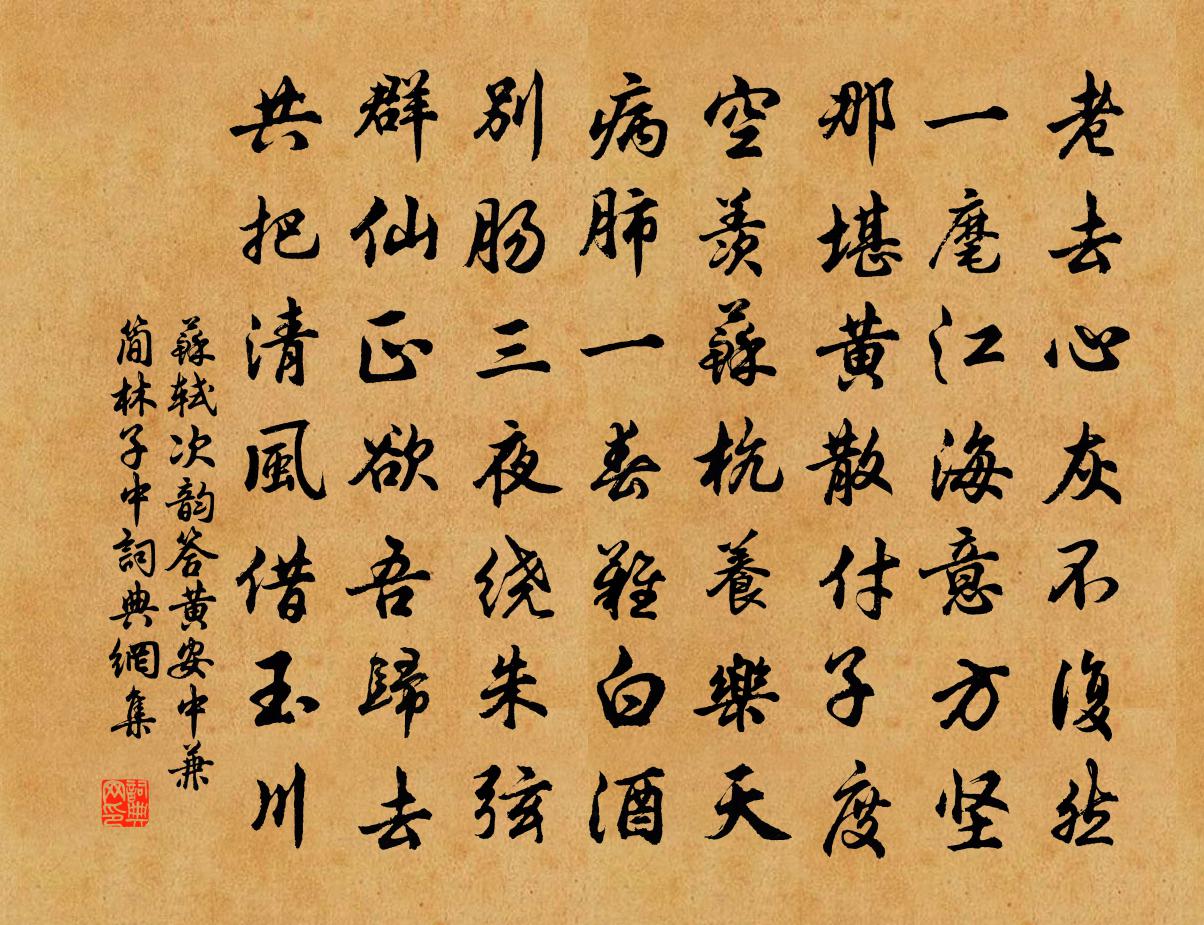 老去心灰不復然
一麾江海意方坚
那堪黄散付子度
空羡蘇杭養樂天
病肺一春難白酒
别肠三夜绕朱弦
群仙正欲吾歸去
共把清風借玉川
蘇轼次韵答黄安中兼
简林子中詞典網集
詞典网印